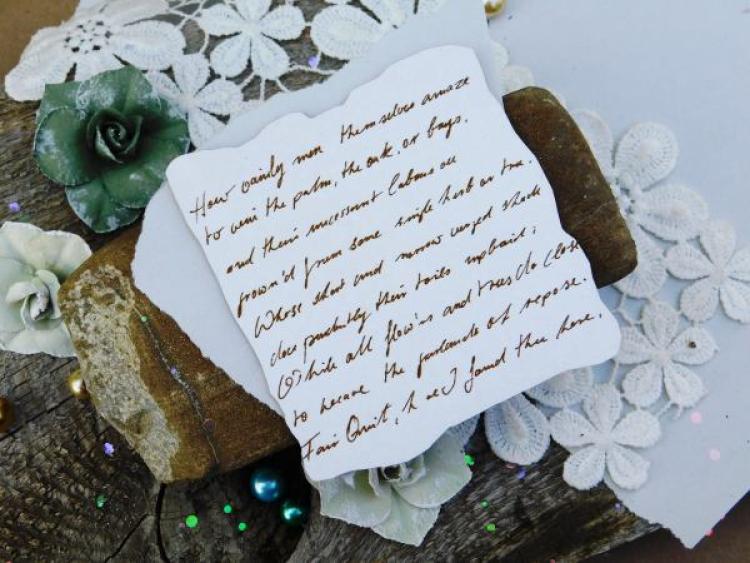 How vainly men themselves amaze
to win the palm, the oak, or bays.
and their incessant labours see
Crown'd from some single herb or tree.
Whose short and narrow verged shade
does prudently their toils upbraid;
While all flow'rs and trees do close
to weave the garlands of repose.
Fair Quiet, have I found thee here,